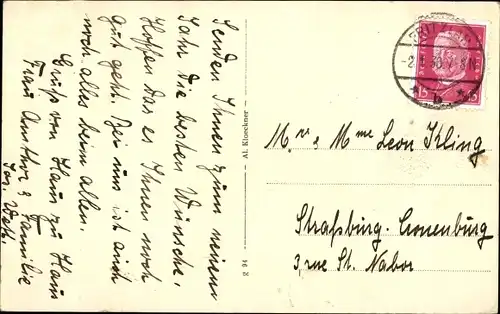 Senden Ihnen zum neuen
Jahr die besten Wünsche,
Hoffen das es Ihnen noch
gut geht. Bei uns ist auch
noch alles beim alten.
Gruß von Haus zu Haus
Frau Amthor & Familie
Jos.
2 94 — Al. Kloeckner —
- 2.1.30.
* b *
15 15
Mr & Mme Leon Kling
Straßburg. Cronenburg
3, rue St. Nabor